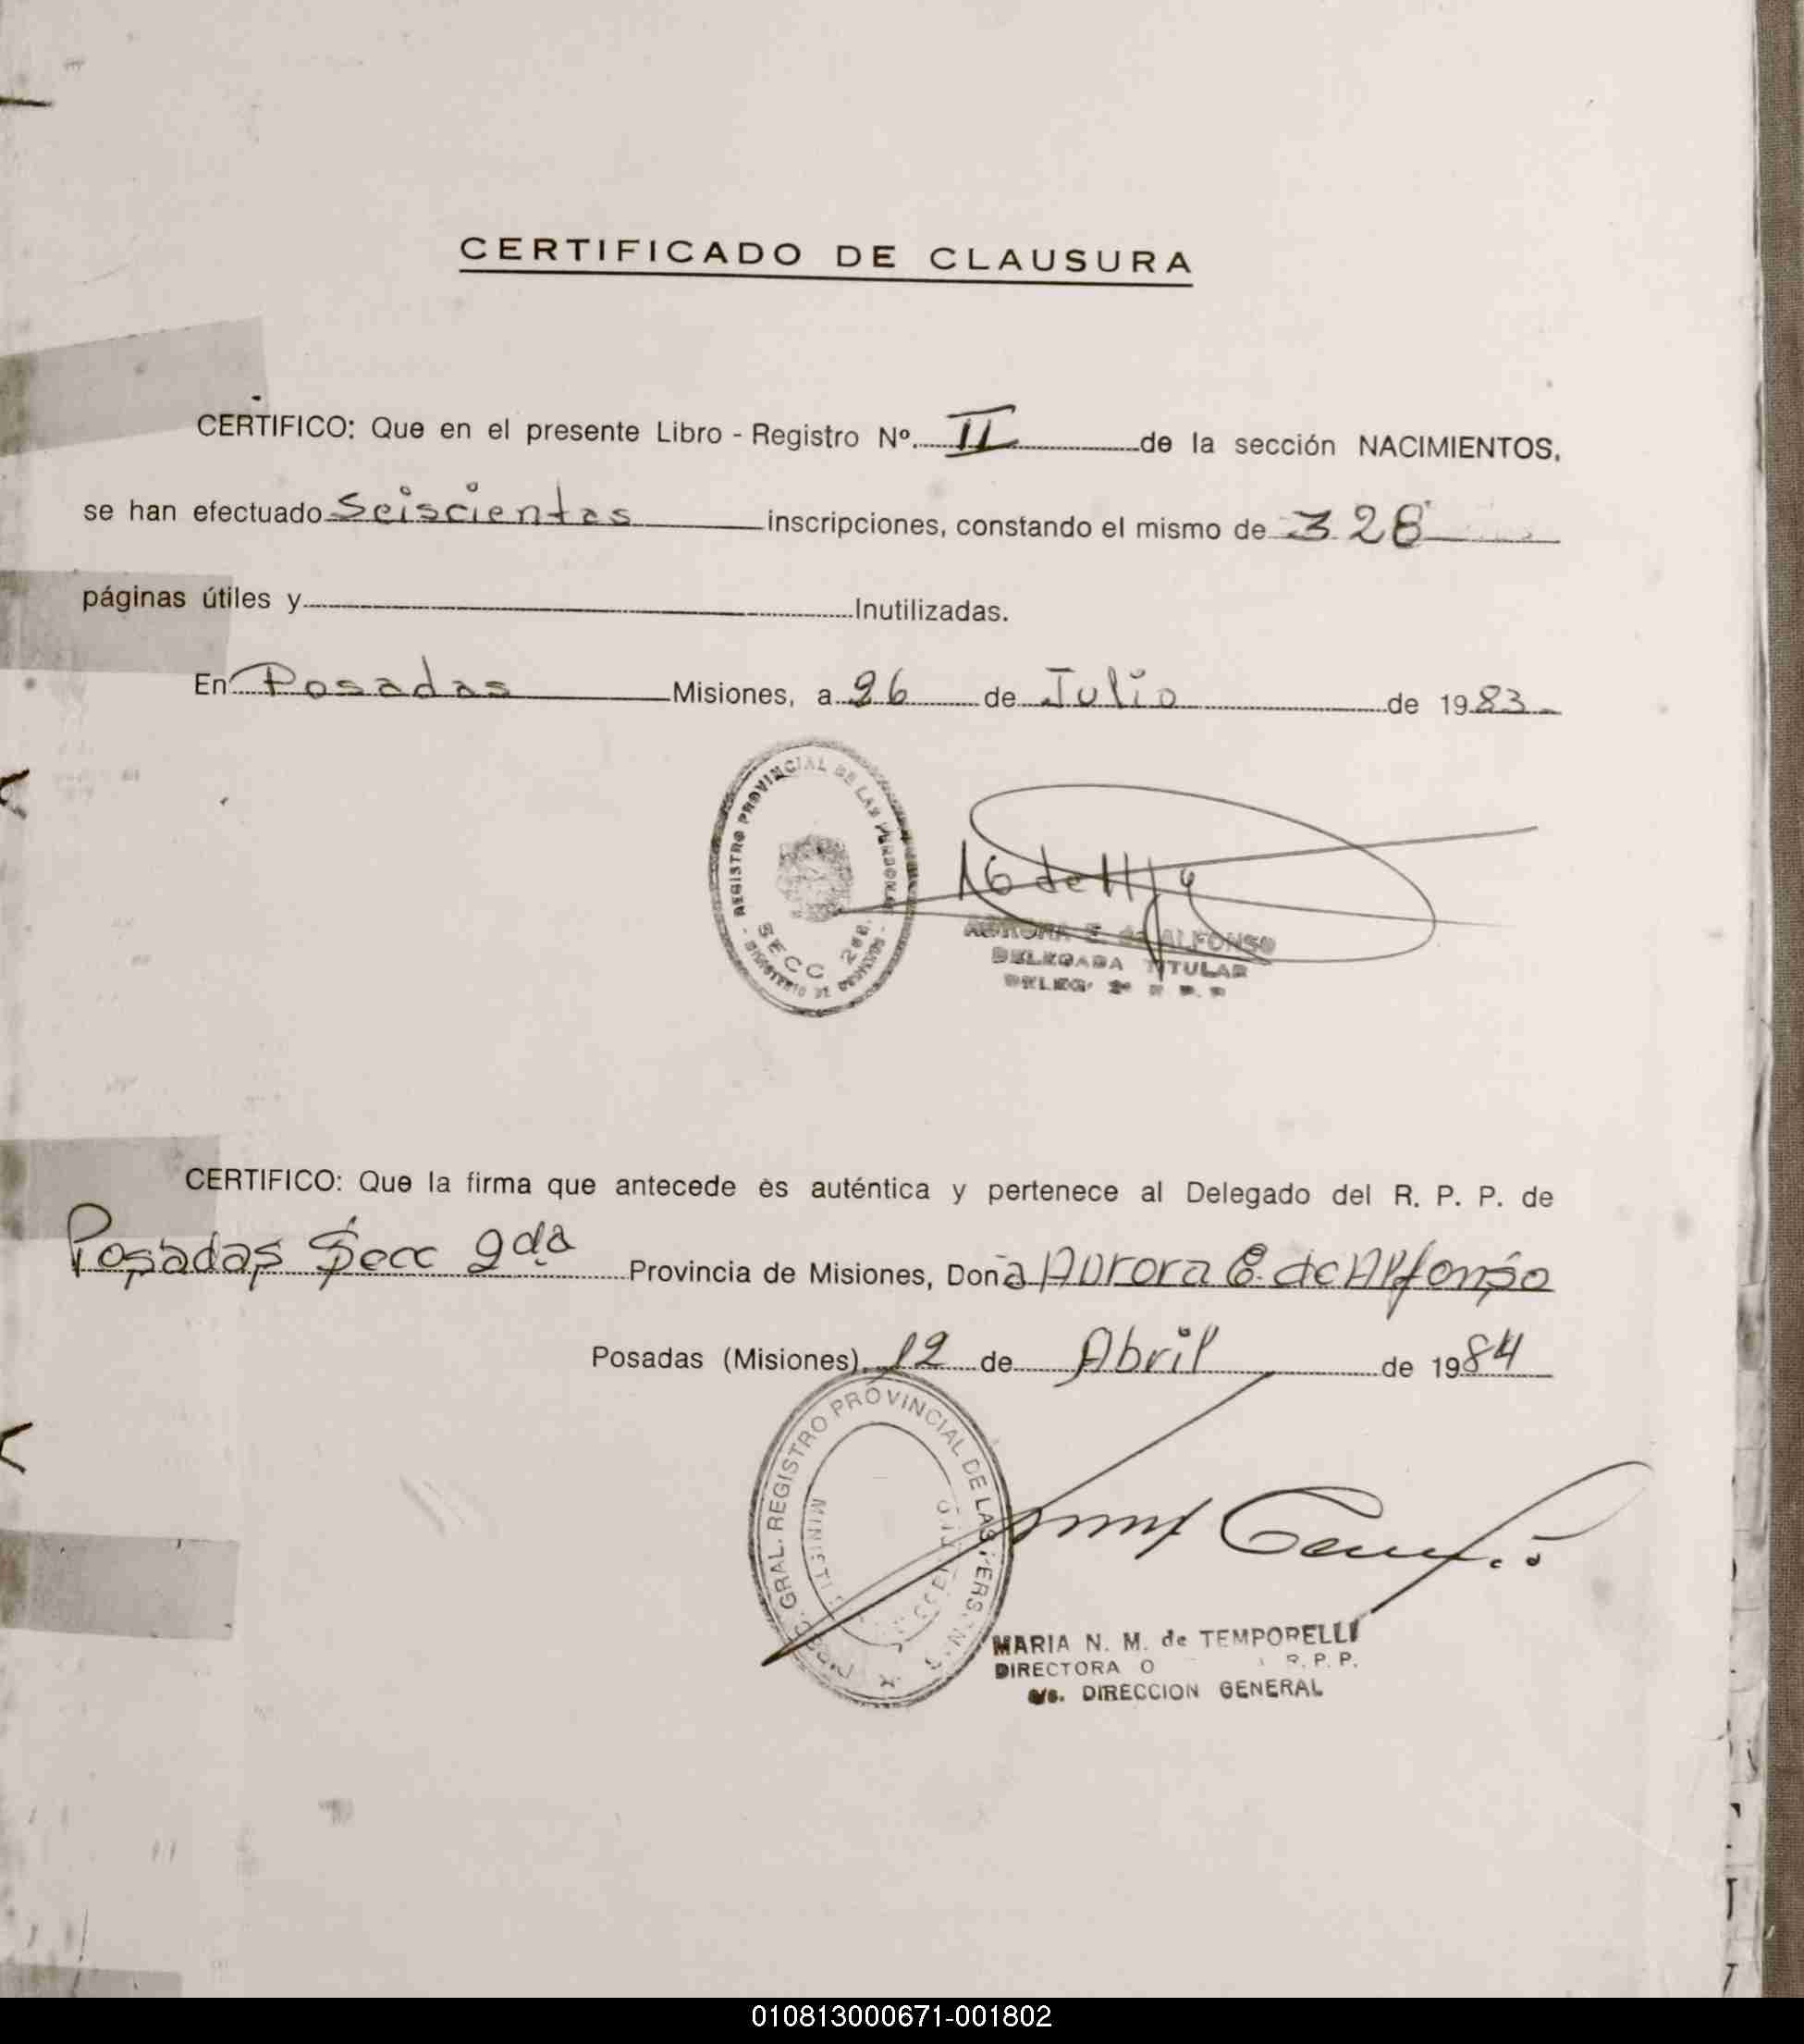 CERTIFICADO DE CLAUSURA
CERTIFICO: Que en el presente Libro - Registro Nº II de la sección NACIMIENTOS,
se han efectuado Seiscientas inscripciones, constando el mismo de 328
páginas útiles y Inutilizadas.
En Posadas Misiones, a 26 de Julio de 1983.
REGISTRO PROVINCIAL DE LAS PERSONAS
SECC 2da.
AURORA E. de ALFONSO
DELEGADA TITULAR
DELEG. 2ª R. P. P.
CERTIFICO: Que la firma que antecede es auténtica y pertenece al Delegado del R. P. P. de
Posadas Secc 2da Provincia de Misiones, Doña Aurora E. de Alfonso
Posadas (Misiones), 12 de Abril de 1984
GRAL. REGISTRO PROVINCIAL DE LAS PERS.
MARIA N. M. de TEMPORELLI
DIRECTORA R. P. P.
DIRECCION GENERAL
010813000671-001802